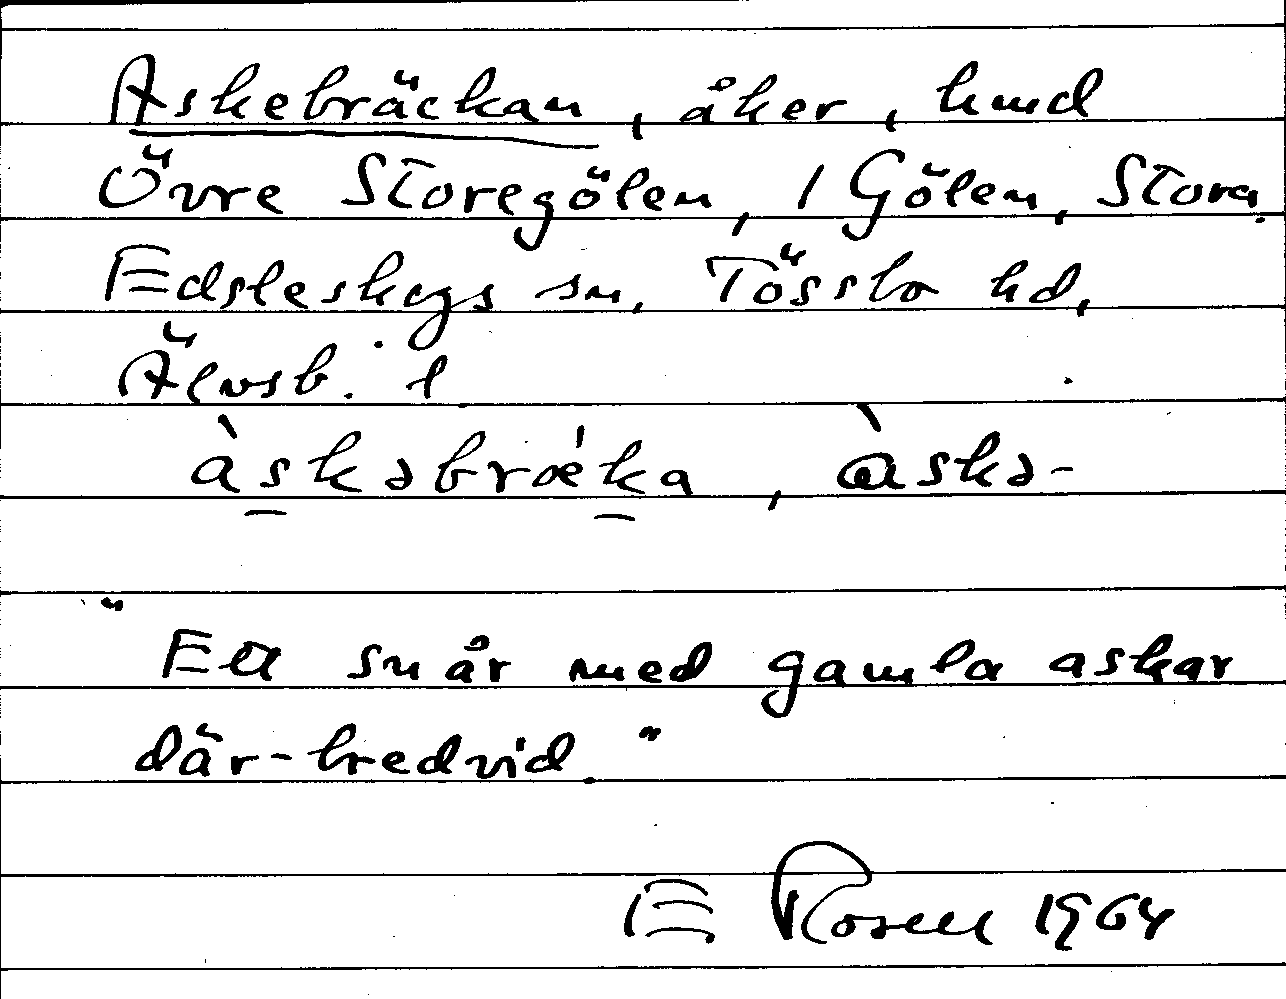 Askebräckan, åker, hmd
Övre Storegölen, 1 Gölen, Stora.
Edsleskogs sn, Tössbo hd,
Älvsb. l
àskəbrǽka, àskə-
"Ett snår med gamla askar
där-bredvid."
E Rosell 1964